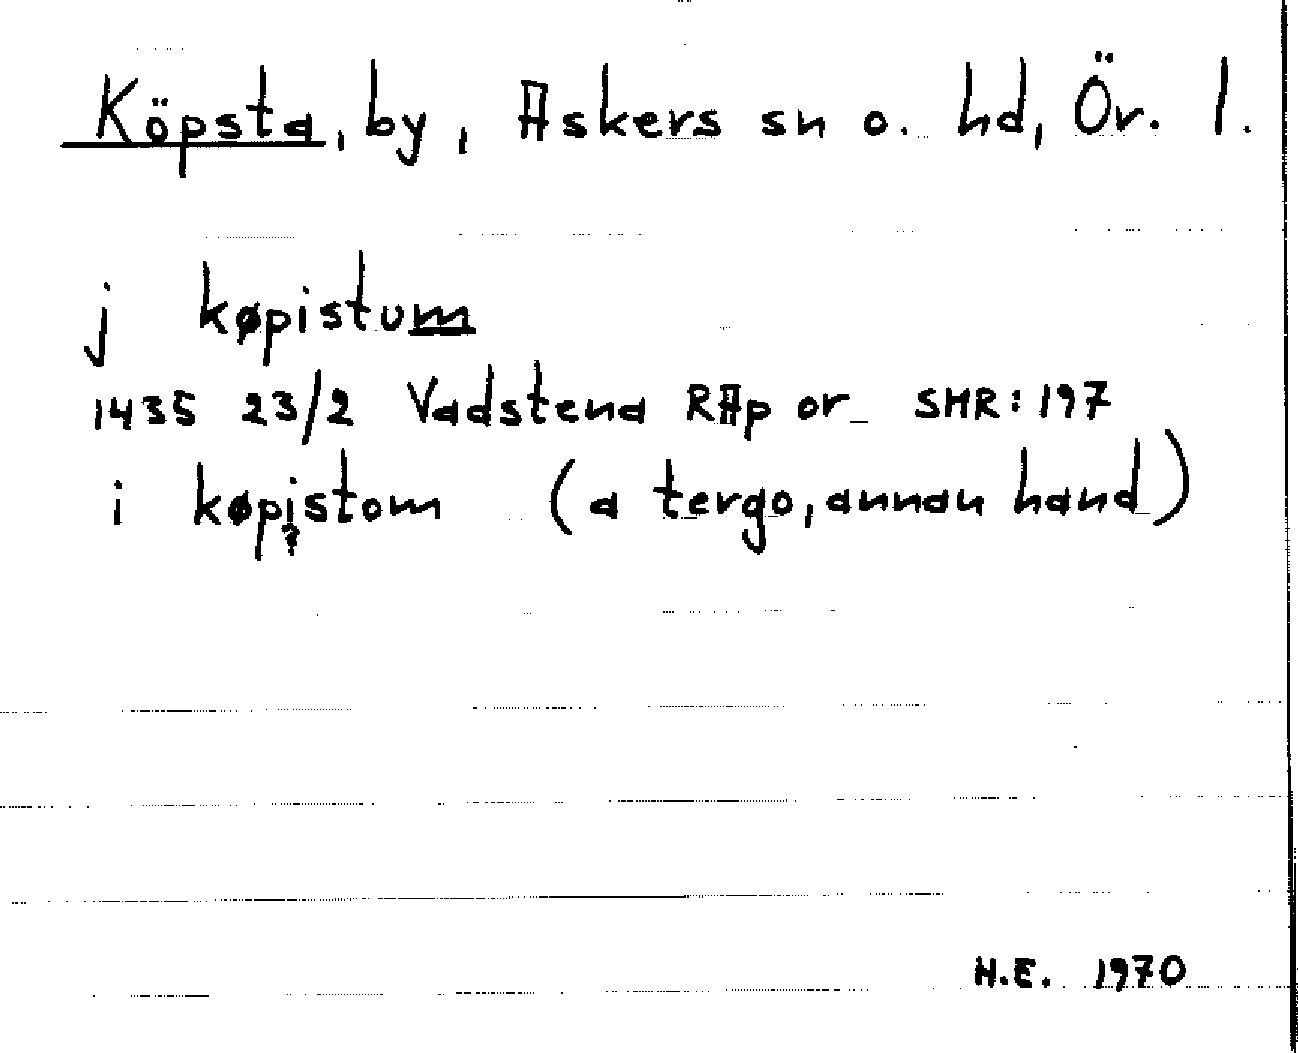 Köpsta, by, Askers sn o. hd, Ör. l.
j køpistum
1435 23/2 Vadstena RAp or SMR: 197
i køpistom (a tergo, annan hand)
?
H.E. 1970